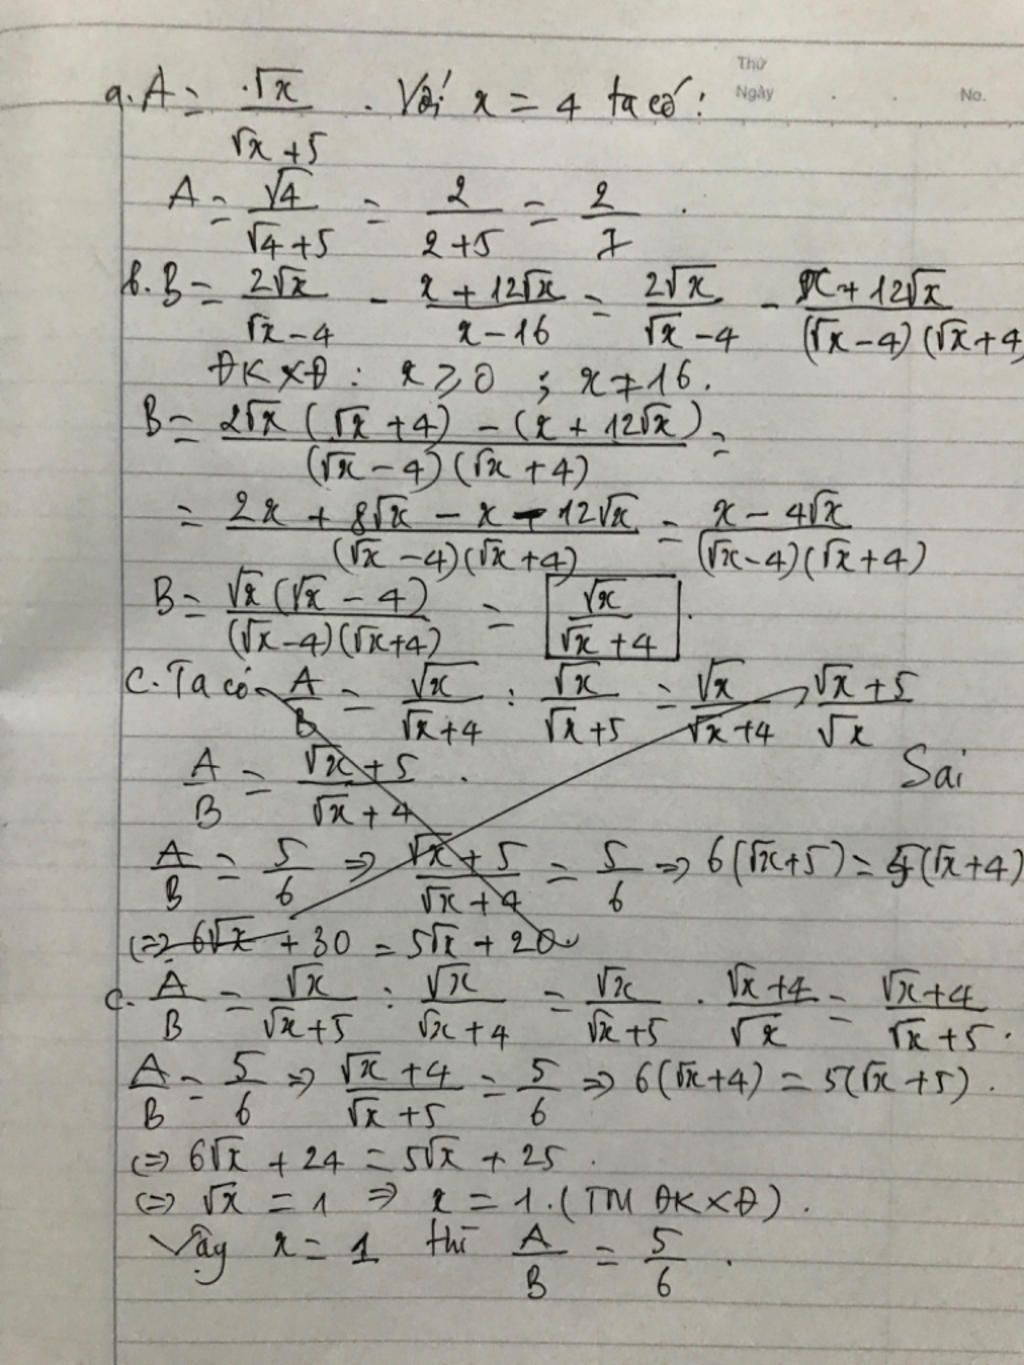 Thứ
Ngày . . No.
a. A = √x / (√x + 5) . Với x = 4 ta có:
A = √4 / (√4 + 5) = 2 / (2 + 5) = 2/7 .
b. B = 2√x / (√x - 4) - (x + 12√x) / (x - 16) = 2√x / (√x - 4) - (x + 12√x) / (√x - 4)(√x + 4
ĐKXĐ : x ≥ 0 ; x ≠ 16.
B = 2√x (√x + 4) - (x + 12√x) / (√x - 4)(√x + 4) =
= (2x + 8√x - x - 12√x) / (√x - 4)(√x + 4) = (x - 4√x) / (√x - 4)(√x + 4)
B = √x(√x - 4) / (√x - 4)(√x + 4) = √x / (√x + 4) .
C. Ta có A/B = √x / (√x + 4) : √x / (√x + 5) = √x / (√x + 4) . (√x + 5) / √x
A/B = (√x + 5) / (√x + 4) . Sai
A/B = 5/6 => (√x + 5) / (√x + 4) = 5/6 => 6(√x + 5) = 5(√x + 4)
(=> 6√x + 30 = 5√x + 20
c. A/B = √x / (√x + 5) : √x / (√x + 4) = √x / (√x + 5) . (√x + 4) / √x = (√x + 4) / (√x + 5) .
A/B = 5/6 => (√x + 4) / (√x + 5) = 5/6 => 6(√x + 4) = 5(√x + 5) .
(=> 6√x + 24 = 5√x + 25 .
(=> √x = 1 => x = 1. (TM ĐKXĐ) .
Vậy x = 1 thì A/B = 5/6 .